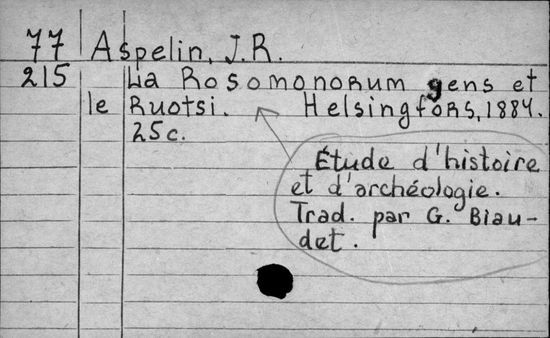 77 Aspelin, J.R.
215 La Rosomonorum gens et
le Ruotsi. Helsingfors, 1884.
25 c.
Étude d'histoire
et d'archéologie.
Trad. par G. Biau-
det.